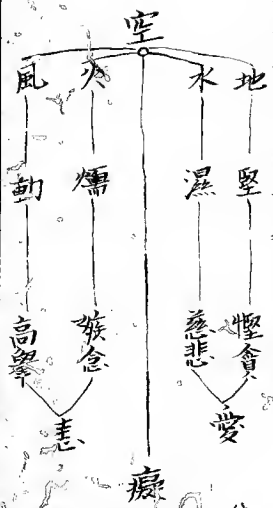 空
地 水 火 風
堅 濕 燸 動
慳貪 慈悲 嫉念 高舉
愛 恚
癡